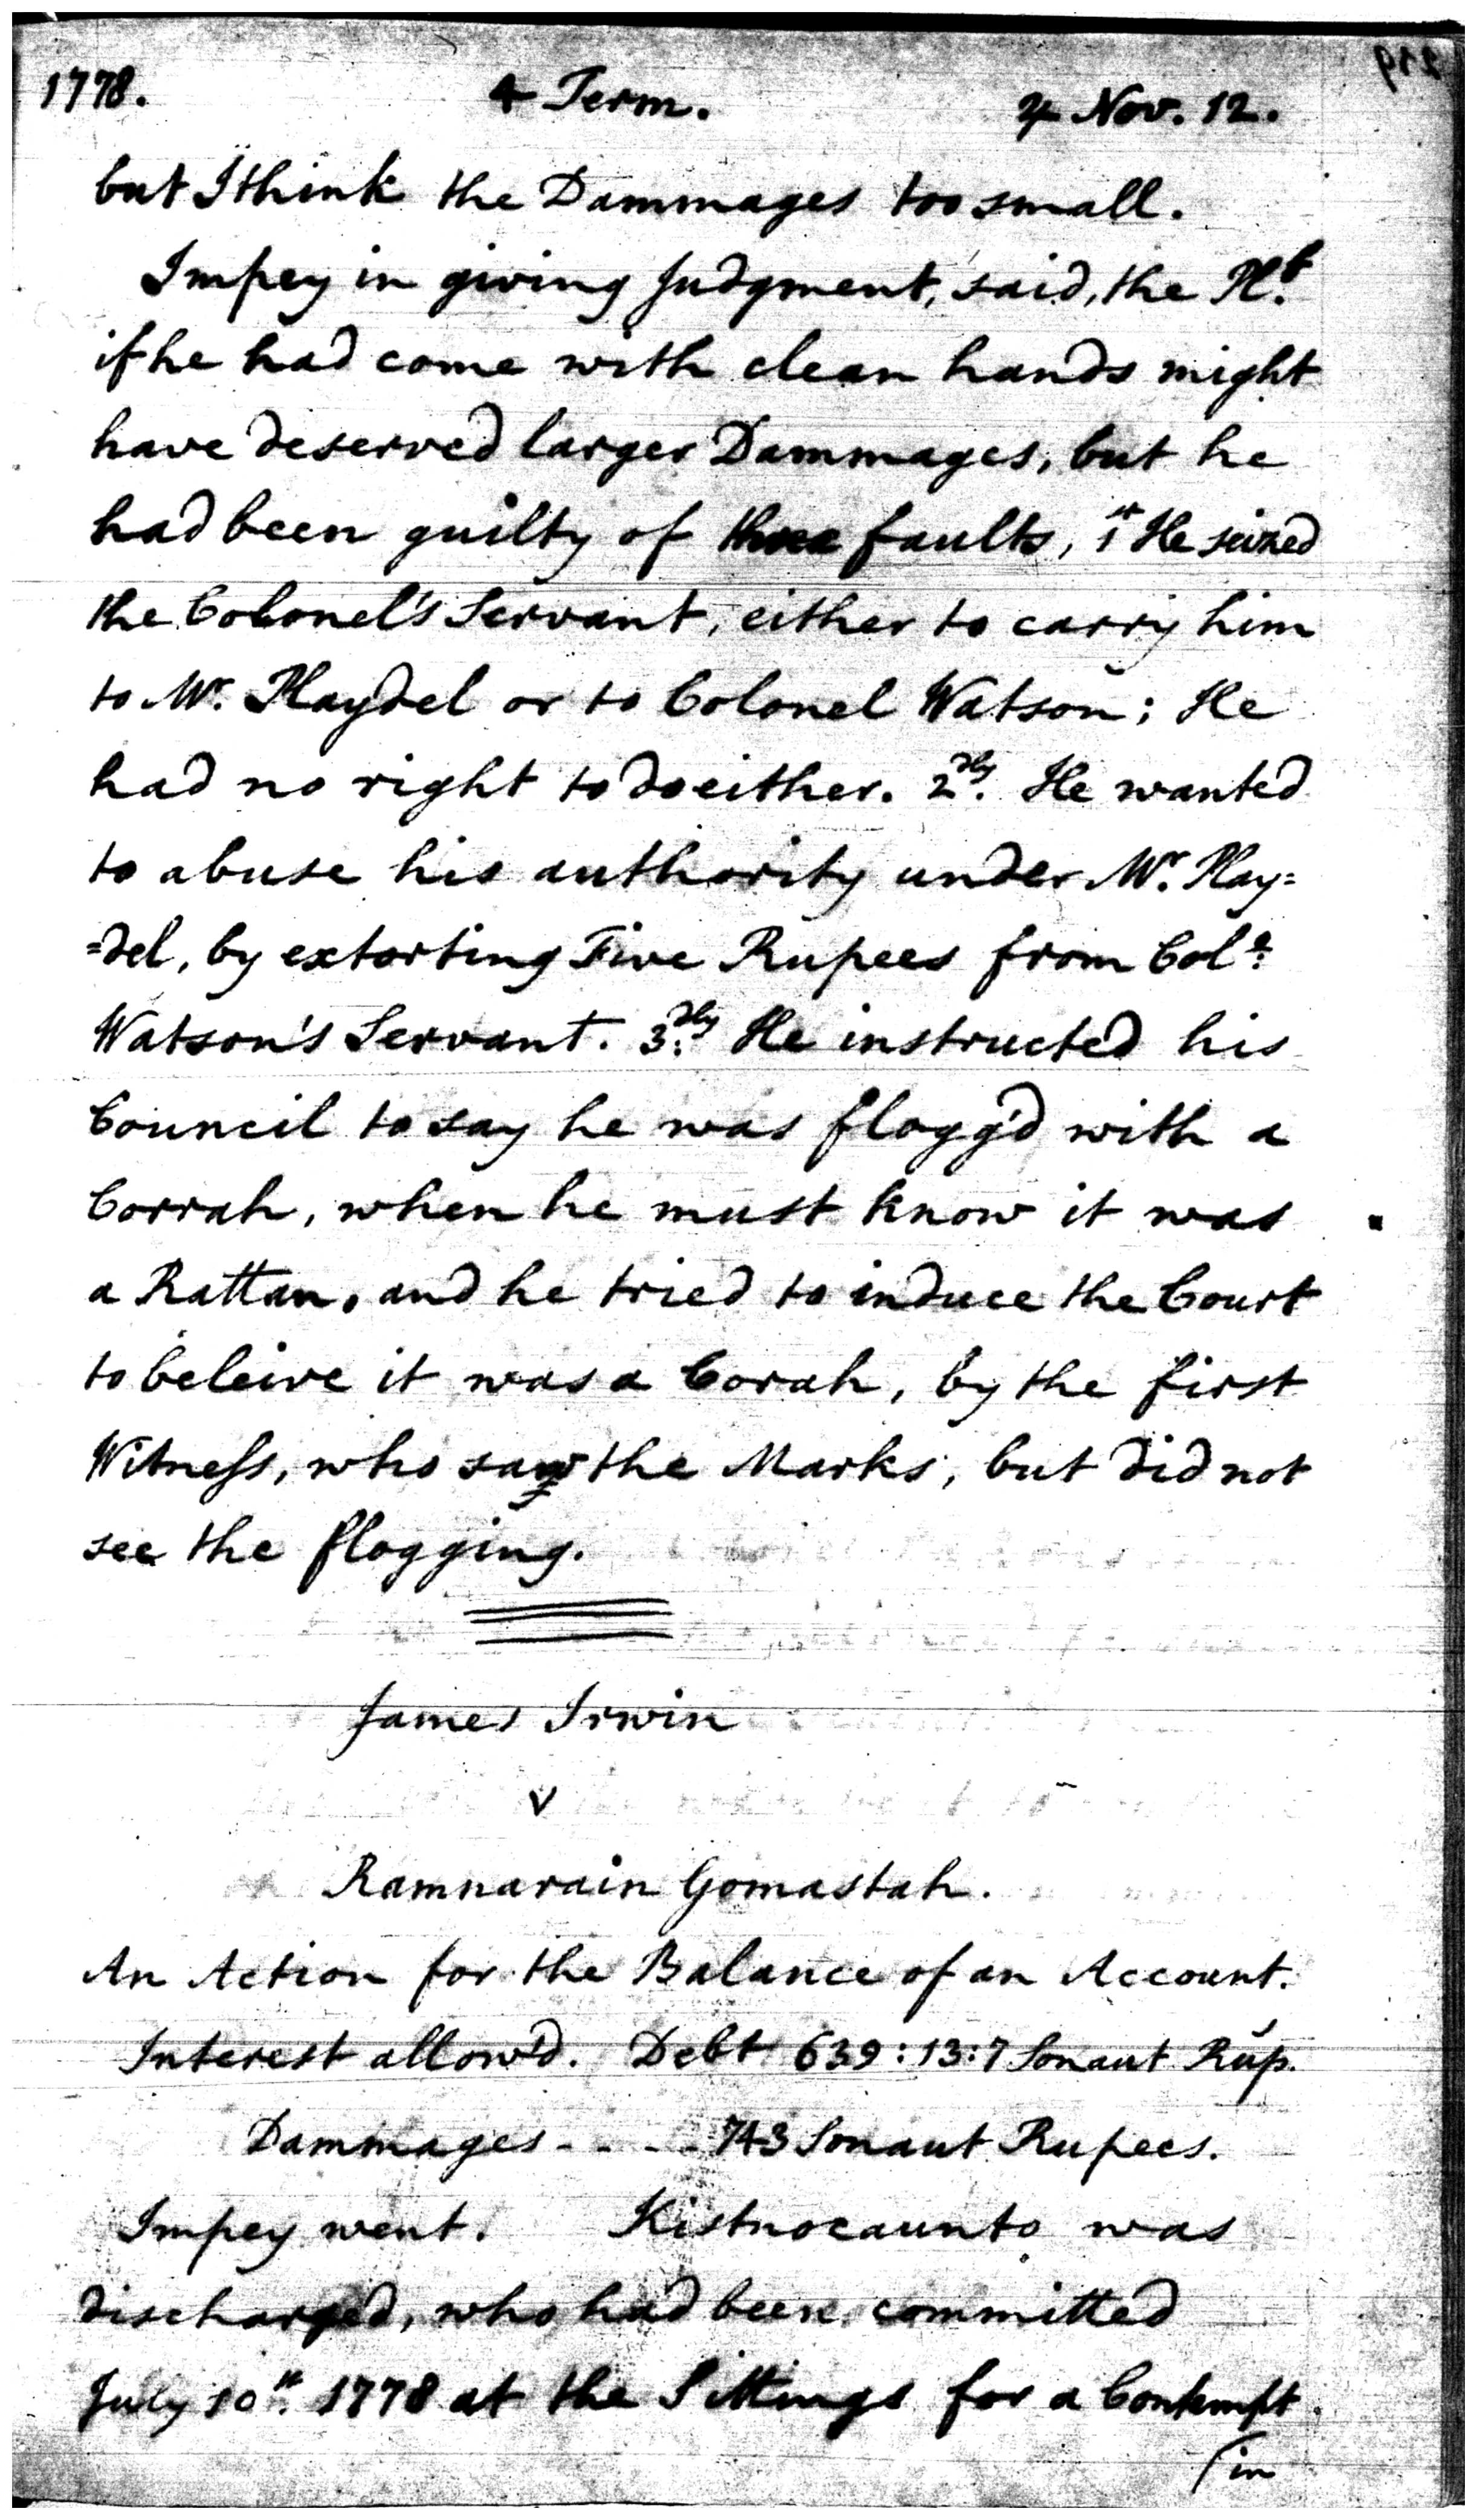 1778. 4 Term. ♃ Nov. 12.
but I think the Dammages too small.
Impey in giving Judgment, said, the Pl.t
if he had come with clean hands might
have deserved larger Dammages, but he
had been guilty of three faults, 1st He seized
the Colonel's Servant, either to carry him
to Mr. Playdel or to Colonel Watson; He
had no right to do either. 2dly. He wanted
to abuse his authority under Mr. Play=
=del, by extorting Five Rupees from Col.
Watson's Servant. 3dly. He instructed his
Council to say he was flogg'd with a
Corrah, when he must know it was
a Rattan, and he tried to induce the Court
to beleive it was a Corah, by the first
Witneſs, who saw the Marks, but did not
see the flogging.
James Irwin
v
Ramnarain Gomastah.
An Action for the Balance of an Account.
Interest allow'd. Debt 639:13:7 Sonaut Rup.
Dammages - - - - 743 Sonaut Rupees.
Impey went. Kistnocaunto was
discharged, who had been committed
July 10th. 1778 at the Sittings for a Contempt
(in